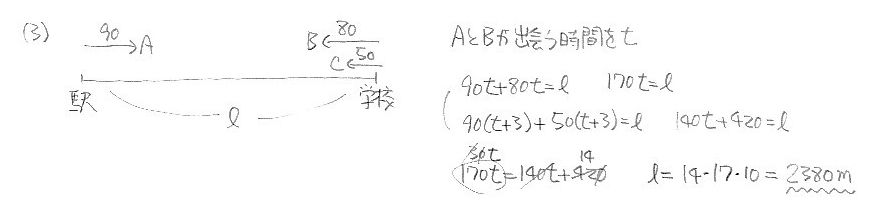 (3) 90 → A B ← 80
C ← 50
駅 l 学校
AとBが出会う時間をt
90t+80t=l 170t=l
90(t+3)+50(t+3)=l 140t+420=l
30t 14
170t=140t+420 l=14・17・10=2380m